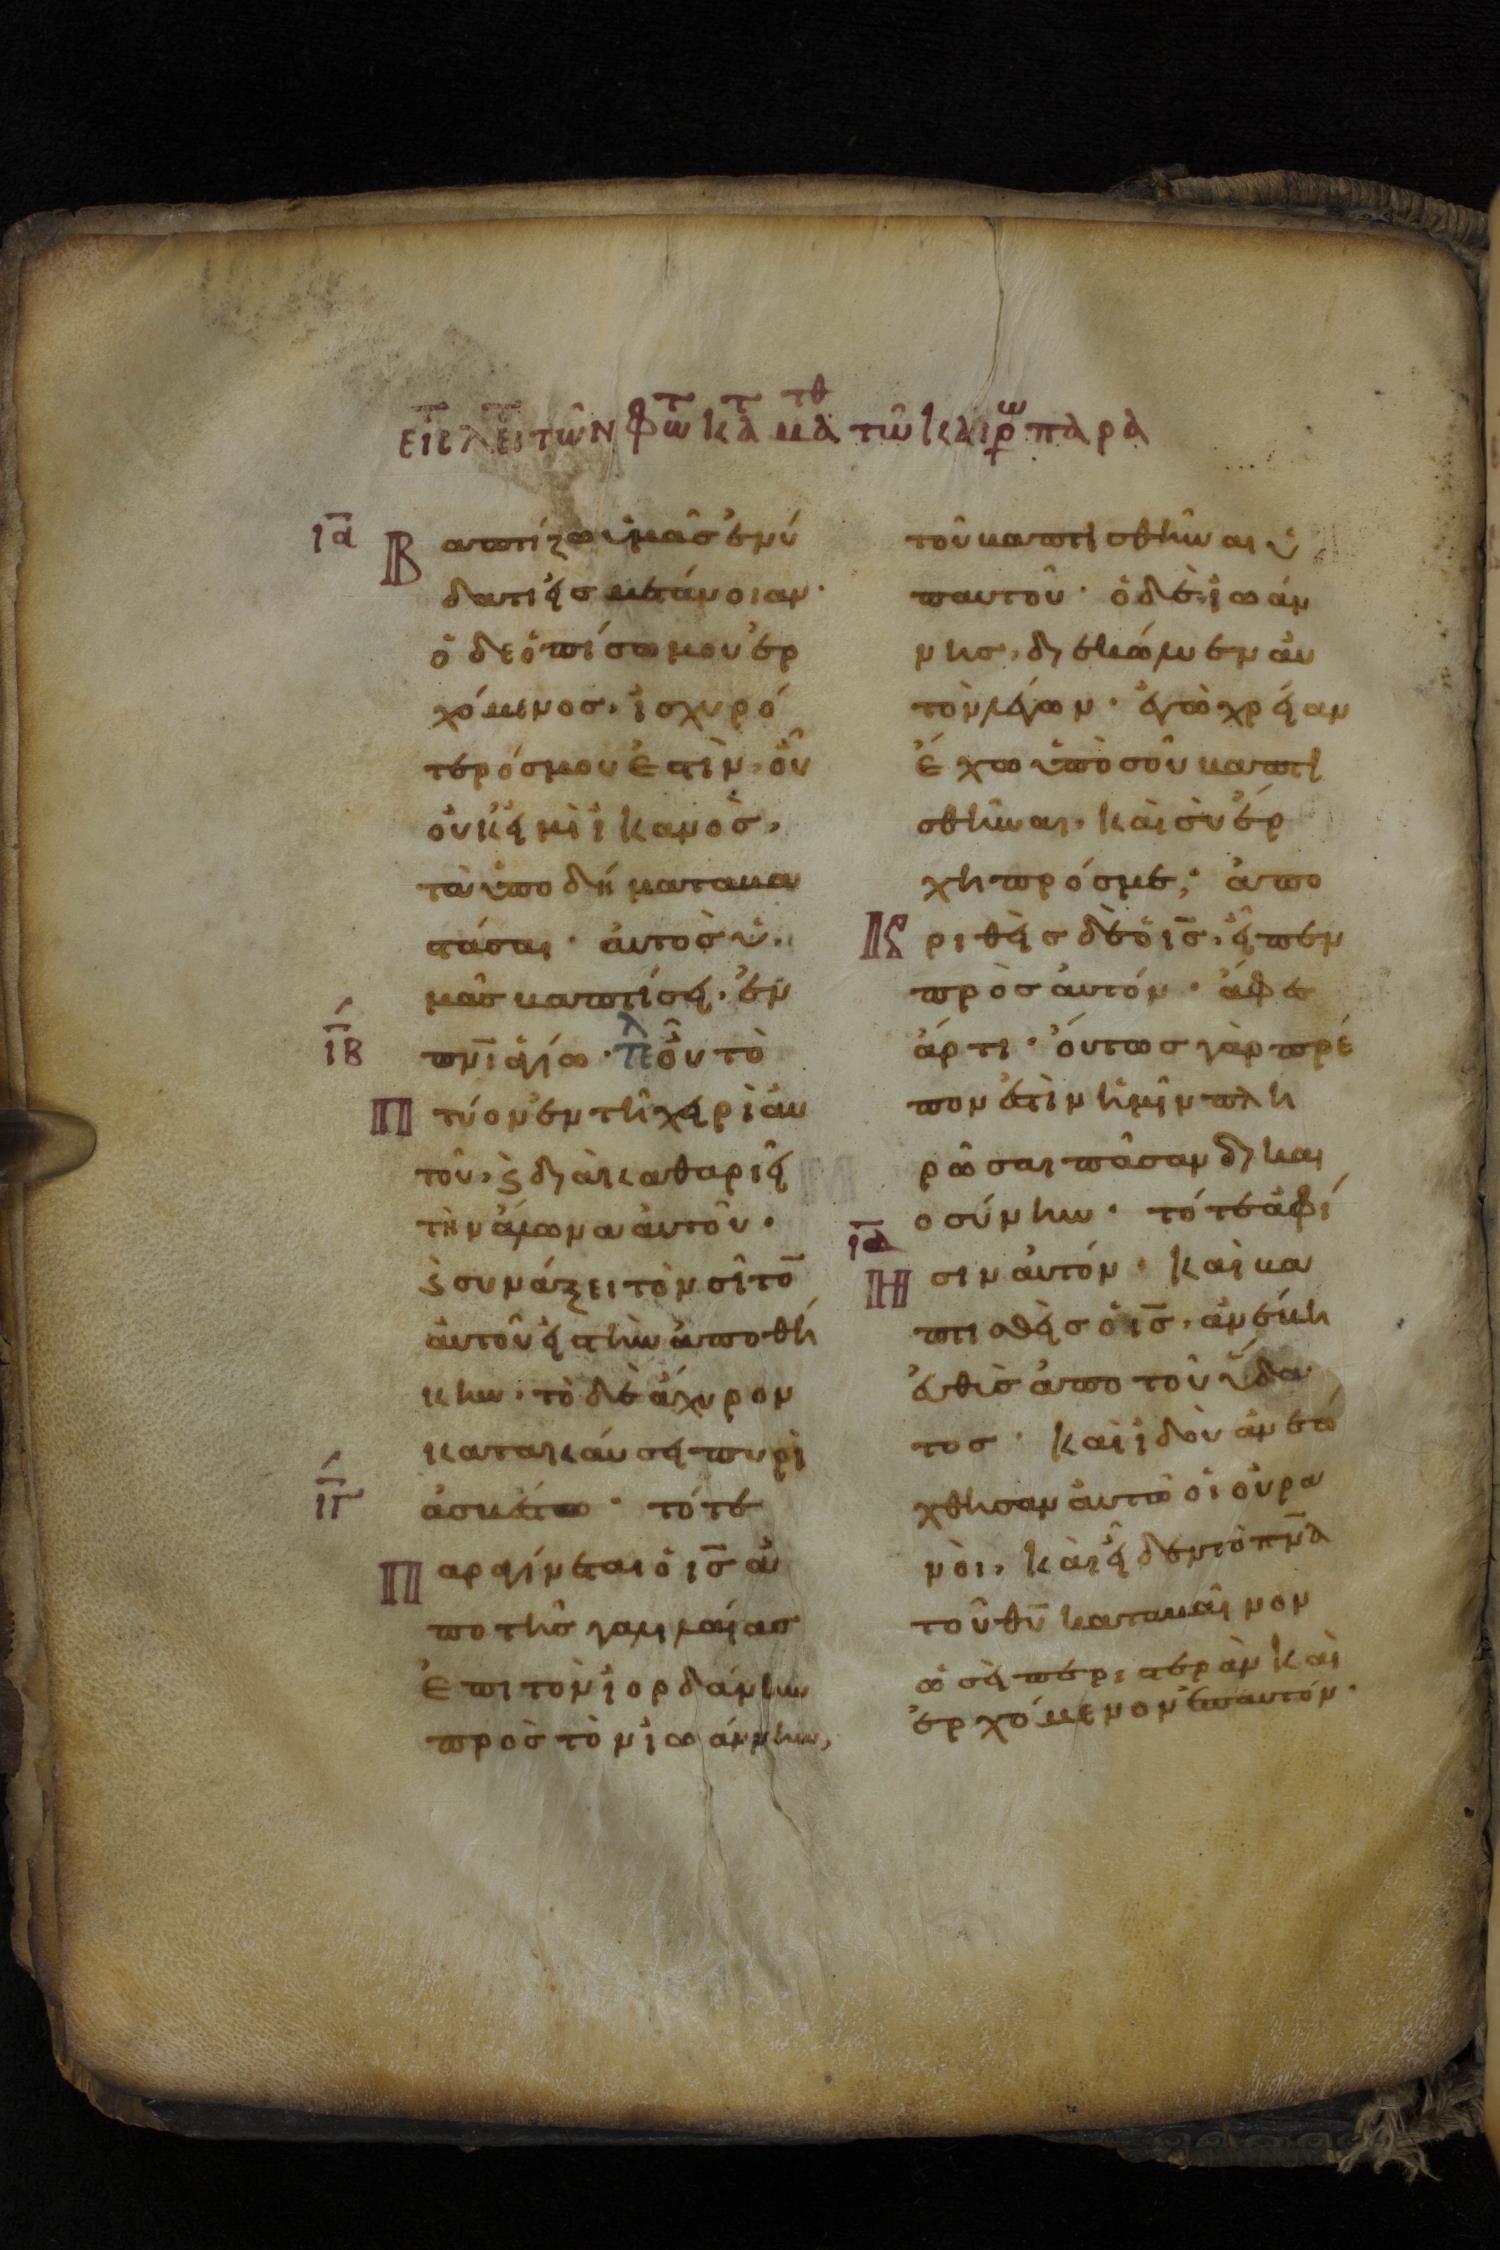 εἰς λει τῶν φώτ κατ ματθ τῶ καιρῶ παρα
ια
Βαπτίζω ὑμᾶσ ἐν ὕ
δατι εἰσ μετάνοιαν·
ὁ δε ὀπίσω μου ἐρ
χόμενοσ, ἰσχυρό
τερόσ μου ἐστὶν, οὗ
οὐκ εἰμὶ ἱκανοσ,
τὰ ὑποδήματα βα
στάσαι· ἀυτοσ ὑ
μᾶσ βαπτίσει, ἐν
ιβ
πνι ἁγίω· οὗ τὸ
Πτύον ἐν τῆ χειρὶ ἀυ
τοῦ, ϛ διακαθαριεῖ
τὴν ἅλωνα ἀυτοῦ·
ϛ συνάξει τὸν σῖτο̅
ἀυτοῦ εἰσ τὴν ἀποθή
κην, τὸ δὲ ἄχυρον
κατακάυσει πυρὶ
ιγ
ἀσβέστω· τότε
Παραγίνεται ὁ ισ ἀ
πο τῆσ γαλιλαίασ
ἐπι τὸν ἰορδάνην
πρὸσ τὸν ἰωάννην,
τοῦ βαπτισθῆναι ὑ
π αυτοῦ· ὁ δὲ ἰωάν
νησ, διεκώλυεν ἀυ
τὸν λέγων· ἐγὼ χρείαν
ἔχω ὑπὸ σοῦ βαπτι
σθῆναι, καὶ σὺ ἔρ
χη πρόσ με; ἀπο
Κριθεὶσ δὲ ὁ ισ, εἶπεν
πρὸσ ἀυτόν· ἄφεσ
ἄρτι· ὅυτωσ γὰρ πρέ
πον ἐστὶν ἡμῖν πλη
ρῶσαι πᾶσαν δικαι
οσύνην· τότε ἀφί
ιδ
ησιν ἀυτόν· Καὶ βα
πτισθεὶσ ὁ ισ, ἀνέβη
ἐυθὺσ ἀπο τοῦ ὕδα
τοσ· καὶ ἰδοὺ ἀνεώ
χθησαν ἀυτῶ οἱ ὀυρα
νοὶ, καὶ εἶδεν τὸ πνα
τοῦ θυ καταβαῖνον
ὡσεὶ περιστερὰν καὶ
ἐρχόμενον ἐπ αυτόν·